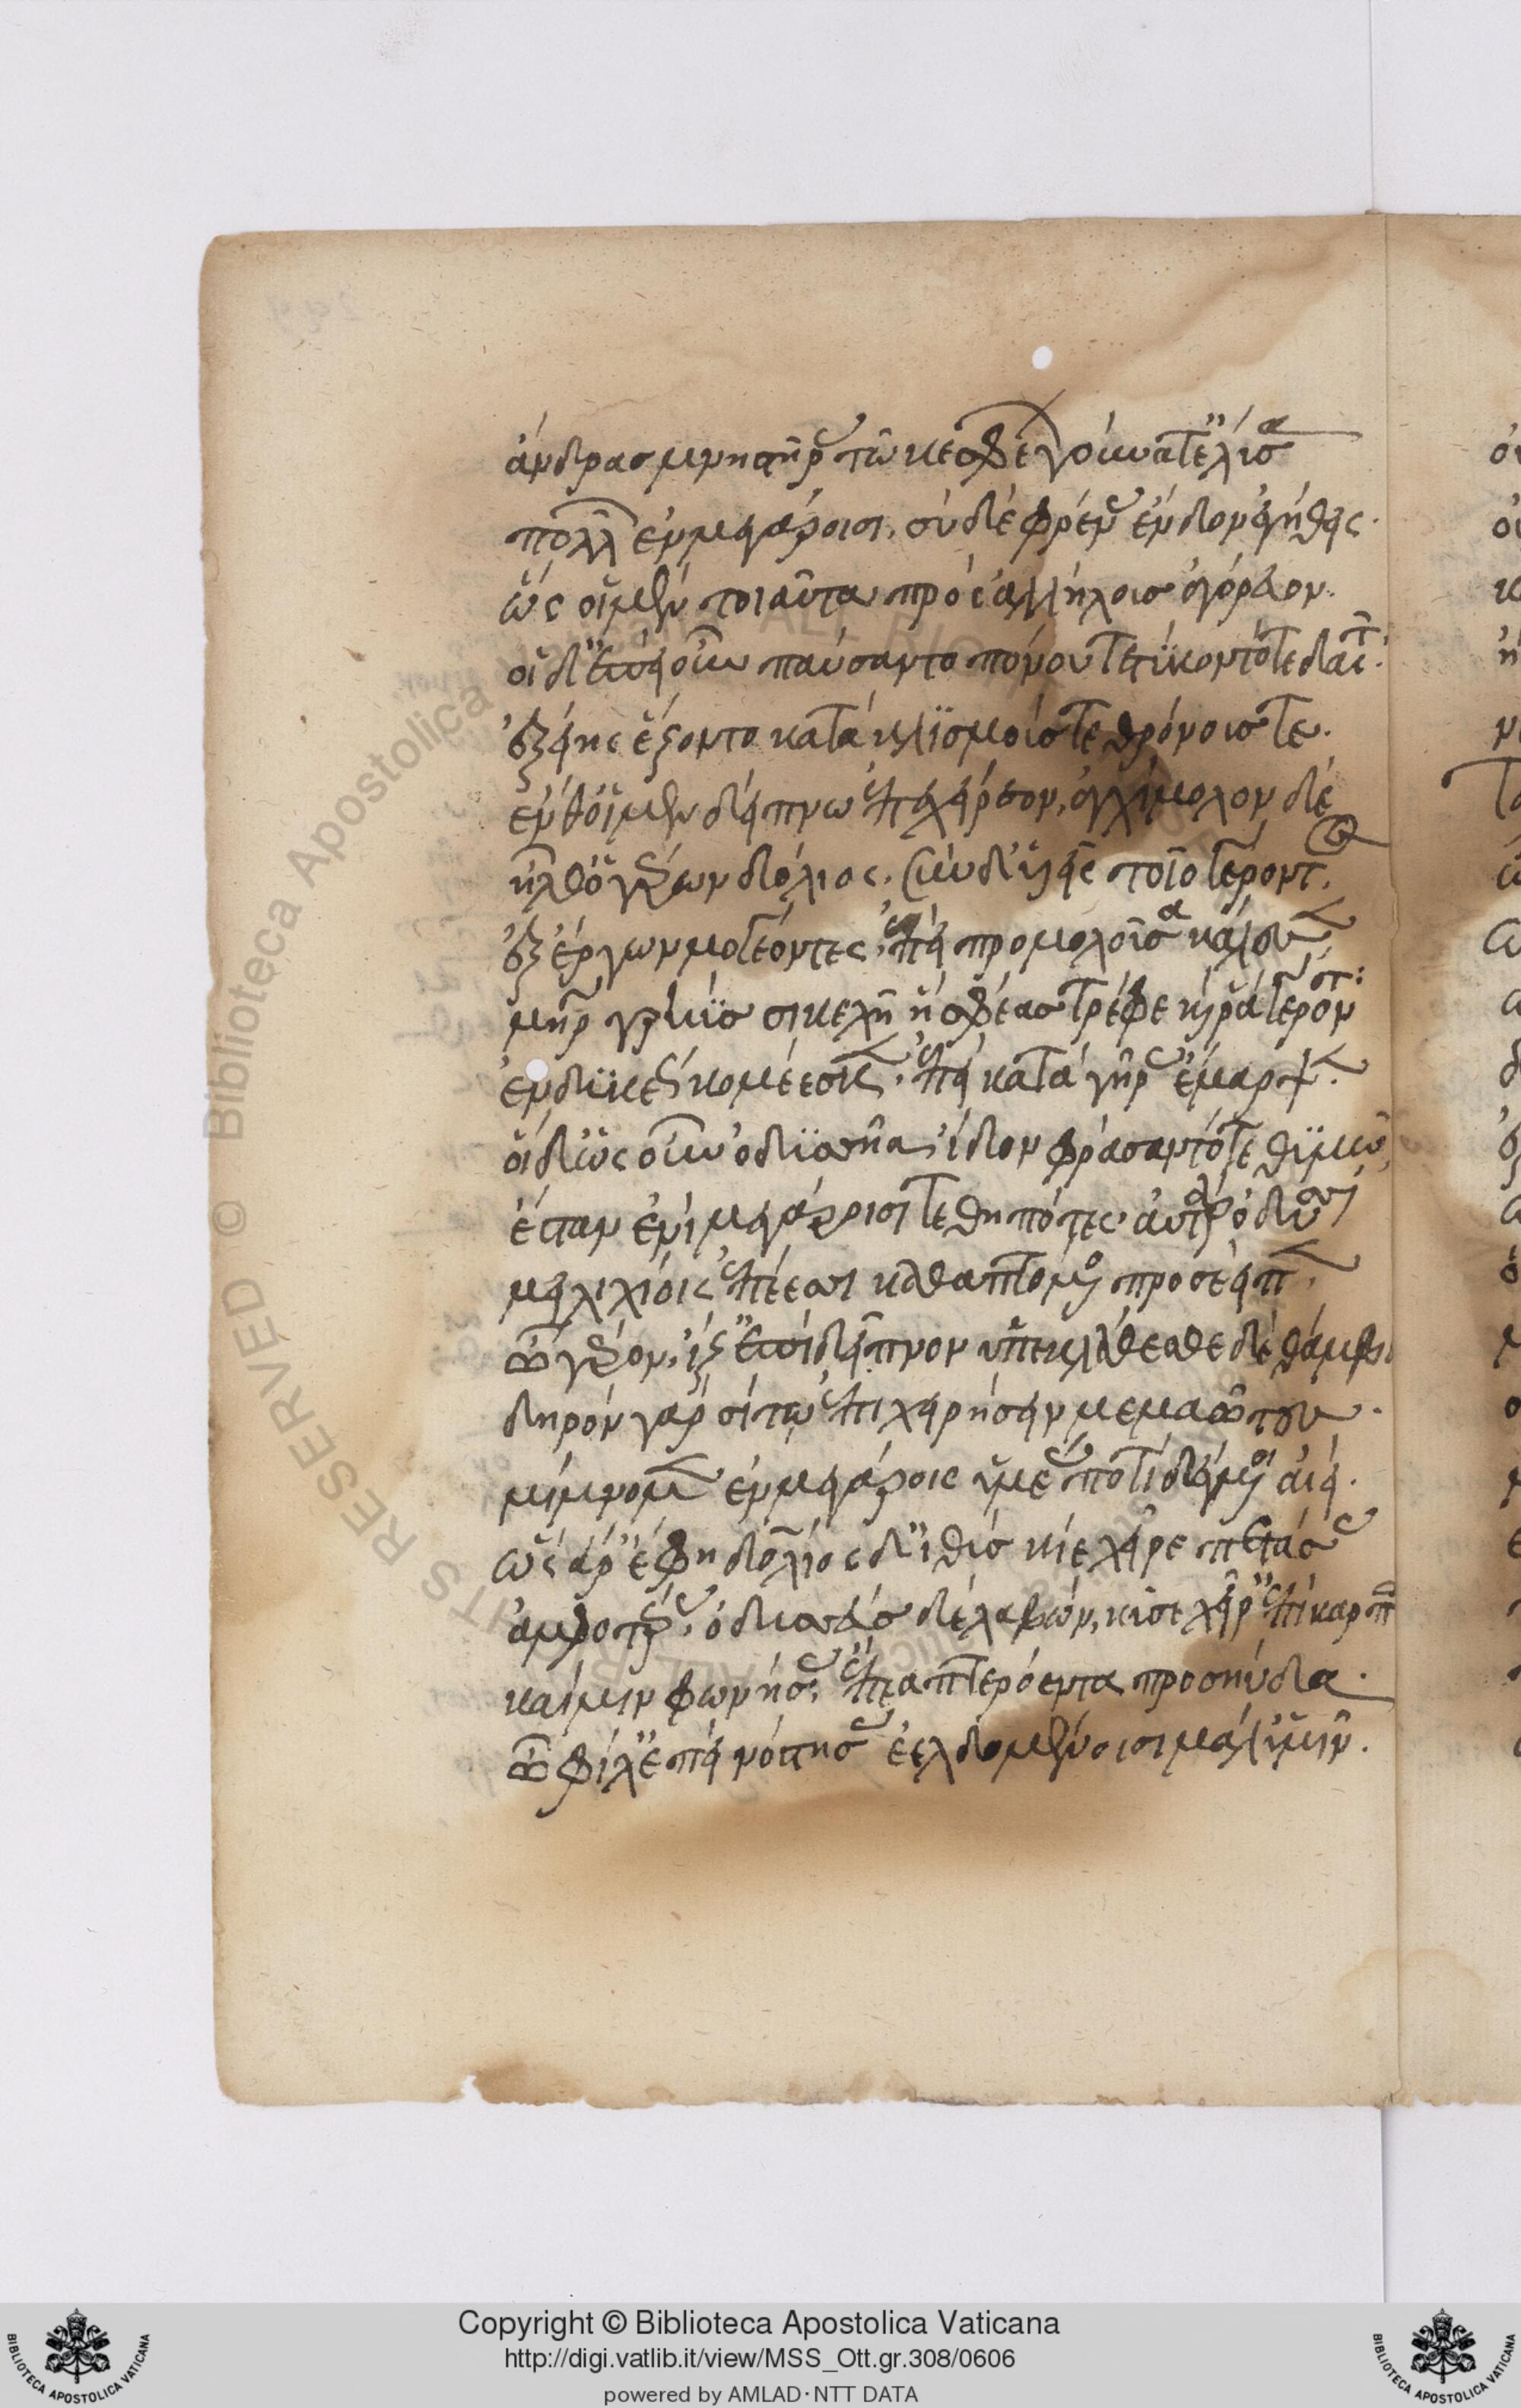 ἄνδρας μνηστῆρας· τῶ κε σφέων γούνατ' ἔλυσα
πολλῶν ἐν μεγάροισι, σὺ δὲ φρένας ἔνδον ἐγήθεις.
ὣς οἱ μὲν τοιαῦτα πρὸς ἀλλήλους ἀγόρευον.
οἱ δ' ἐπεὶ οὖν παύσαντο πόνου τετύκοντό τε δαῖτα·
ἑξείης ἕζοντο κατὰ κλισμούς τε θρόνους τε.
ἔνθ' οἱ μὲν δείπνω ἐπεχείρεον, ἀγχίμολον δὲ
ἦλθ' ὁ γέρων δολίος. σὺν δ' υἱεῖς τοῖο γέροντος,
ἐξ ἔργων μογέοντες, ἐπεὶ προμολοῦσα κάλεσσε
μήτηρ γρηῢς σικελὴ ἥ σφέας τρέφε καί ῥα γέροντα
ἐνδυκέως κομέεσκεν, ἐπεὶ κατὰ γῆρας ἔμαρψεν.
οἱ δ' ὡς οὖν ὀδυσῆα ἴδον φράσαντό τε θυμῶ,
ἔσταν ἐνὶ μεγάροισι τεθηπότες· αὐτὰρ ὀδυσσεὺς
μειλιχίοις ἐπέεσσι καθαπτόμενος προσέειπεν,
ὦ γέρον, ἵζ' ἐπὶ δεῖπνον ἀπεκλελάθεσθε δὲ θάμβευς
δηρὸν γὰρ σίτω ἐπιχειρήσειν μεμαῶτες
μίμνομεν ἐν μεγάροις ὑμέας ποτιδέγμενοι αἰεί.
ὣς ἄρ' ἔφη δολίος δ' ἰθὺς κίε χεῖρε πετάσσας
ἀμφοτέρας, ὀδυσεῦς δὲ λαβὼν, κύσε χεῖρ' ἐπὶ καρπῶ
καί μιν φωνήσας, ἔπεα πτερόεντα προσηύδα.
ὦ φίλ' ἐπεὶ νόστησας ἐελδομένοισι μάλ' ἡμῖν.
Copyright © Biblioteca Apostolica Vaticana
http://digi.vatlib.it/view/MSS_Ott.gr.308/0606
powered by AMLAD·NTT DATA